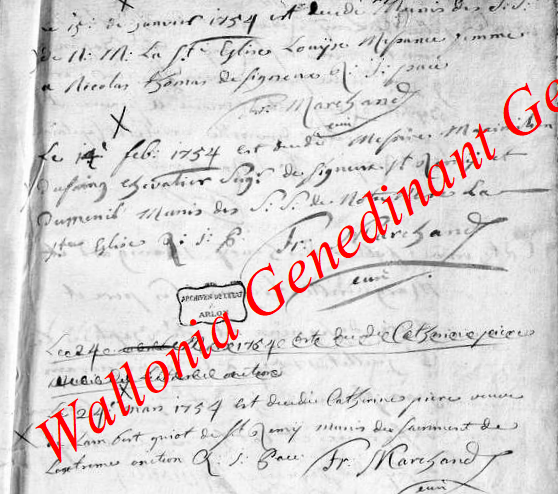 le 15e de janvier 1754 est decedé Munis des S: S:
de N: M: La Ste Eglise Louise Mesance femme
a Nicolas thomas de Signeux R: I: pace
Fr: Marchand
curé
Le 14e feb: 1754 est decedé Messire
Chevalier Sugr de Signeux St Remy et
Dumenil Munis des S: S: de Notre Mere La
Ste Eglise R: I: P:
Fr: Marchand
curé
ARCHIVES DE L'ETAT
ARLON
Le 24e 1754 est decedée Catherine piere
Le 24e Mars 1754 est decedée Catherinne piere veuve
a Lambert guiot de St Remy munis du sacrement de
Lextreme onction R: I: Pace
Fr: Marchand
curé
Wallonia Genedinant Ge